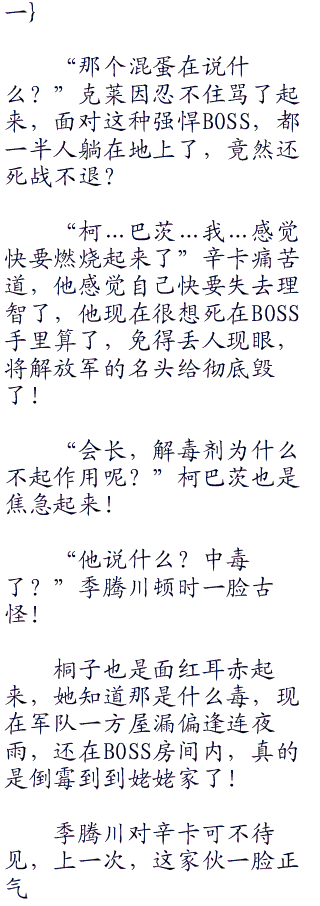 一}
“那个混蛋在说什
么？”克莱因忍不住骂了起
来，面对这种强悍BOSS，都
一半人躺在地上了，竟然还
死战不退？
“柯…巴茨…我…感觉
快要燃烧起来了”辛卡痛苦
道，他感觉自己快要失去理
智了，他现在很想死在BOSS
手里算了，免得丢人现眼，
将解放军的名头给彻底毁
了！
“会长，解毒剂为什么
不起作用呢？”柯巴茨也是
焦急起来！
“他说什么？中毒
了？”季腾川顿时一脸古
怪！
桐子也是面红耳赤起
来，她知道那是什么毒，现
在军队一方屋漏偏逢连夜
雨，还在BOSS房间内，真的
是倒霉到到姥姥家了！
季腾川对辛卡可不待
见，上一次，这家伙一脸正
气